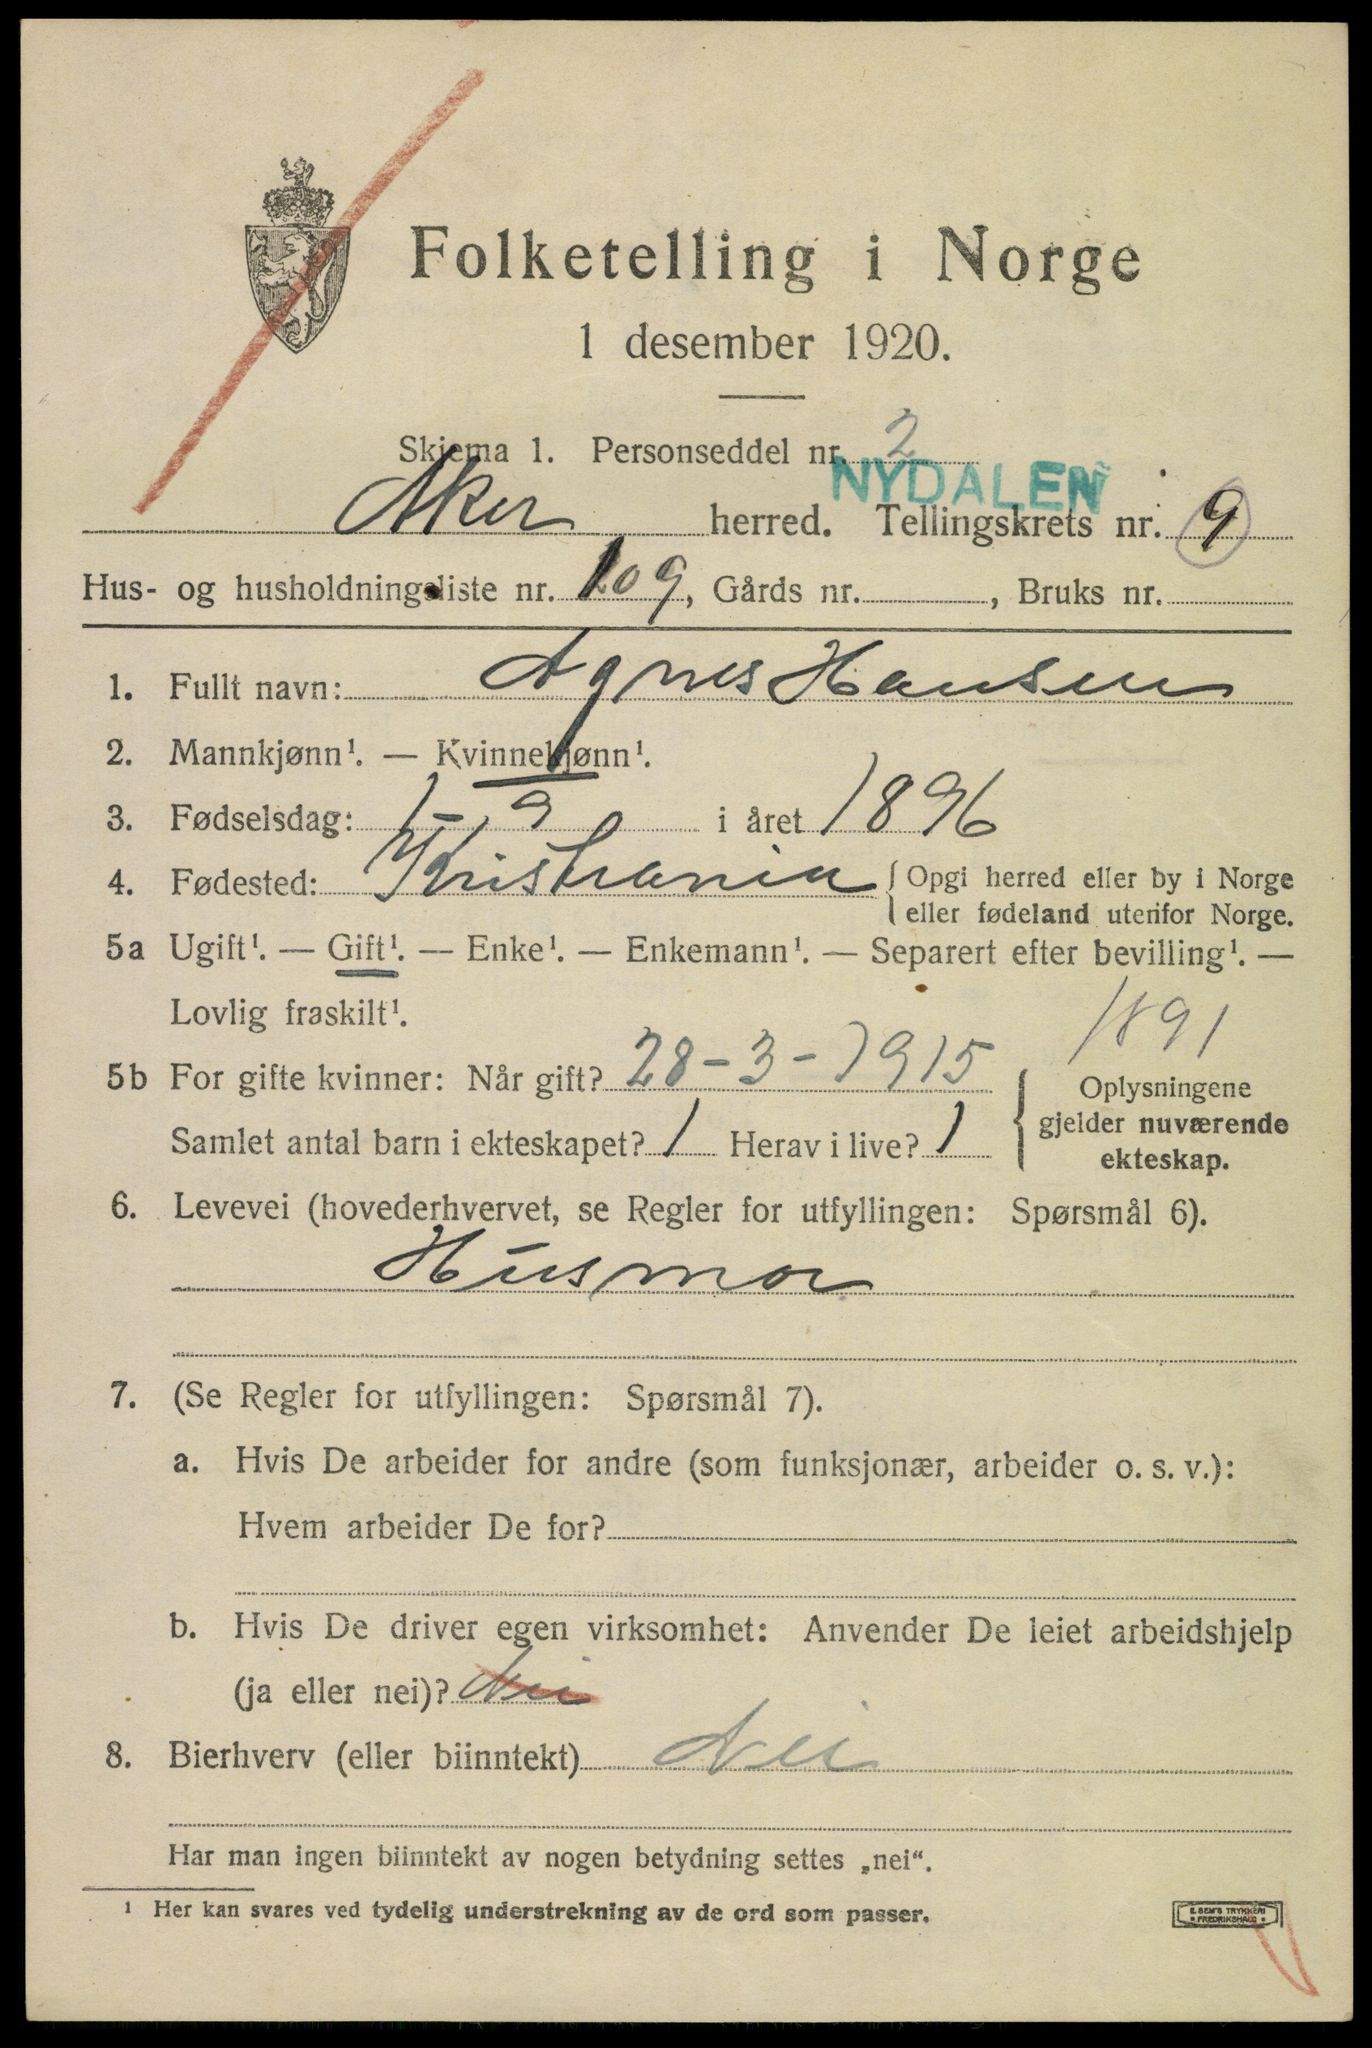 Folketelling i Norge
1 desember 1920.
Skjema 1. Personseddel nr. 2
NYDALEN
Aker herred. Tellingskrets nr. 9
Hus- og husholdningsliste nr. 109, Gårds nr. , Bruks nr.
1. Fullt navn: Agnes Hansen
2. Mannkjønn¹. — Kvinnekjønn¹.
3. Fødselsdag: 1-9 i året 1896
4. Fødested: Kristiania { Opgi herred eller by i Norge
eller fødeland utenfor Norge.
5a Ugift¹. — Gift¹. — Enke¹. — Enkemann¹. — Separert efter bevilling¹. —
Lovlig fraskilt¹.
1891
5b For gifte kvinner: Når gift? 28-3-1915 { Oplysningene
gjelder nuværende
Samlet antal barn i ekteskapet? 1 Herav i live? 1
ekteskap.
6. Levevei (hovederhvervet, se Regler for utfyllingen: Spørsmål 6).
Husmor
7. (Se Regler for utfyllingen: Spørsmål 7).
a. Hvis De arbeider for andre (som funksjonær, arbeider o. s. v.):
Hvem arbeider De for?
b. Hvis De driver egen virksomhet: Anvender De leiet arbeidshjelp
(ja eller nei)? Nei
8. Bierhverv (eller biinntekt) Nei
Har man ingen biinntekt av nogen betydning settes „nei“.
¹ Her kan svares ved tydelig understrekning av de ord som passer.
E. SEM'S TRYKKERI
• FREDRIKSHALD •